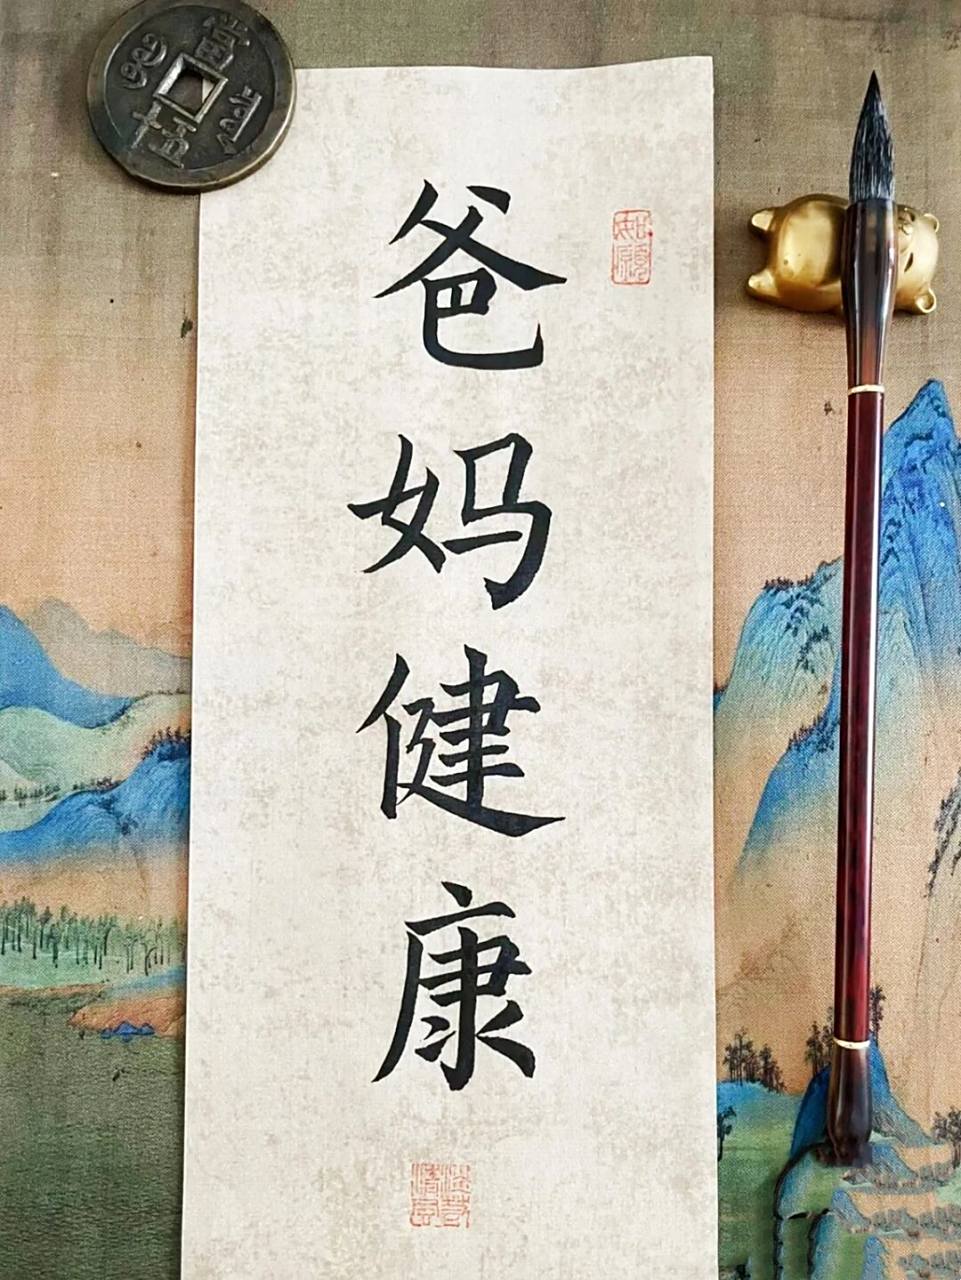 爸妈健康